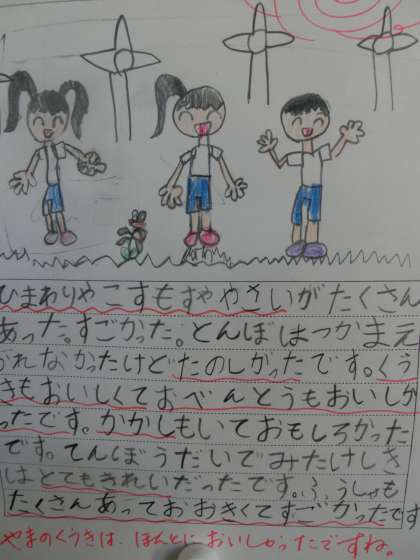 ひまわりやこすもすややさいがたくさん
あった。すごかった。とんぼはつかまえ
れなかったけどたのしかったです。くう
きもおいしくておべんとうもおいしか
ったです。かかしもいておもしろかった
です。てんぼうだいでみたけしき
はとてもきれいだったです。ふうしゃも
たくさんあっておおきくてすごかったです
やまのくうきは、ほんとにおいしかったですね。